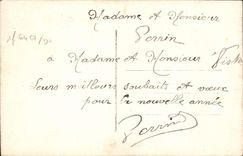 Madame et Monsieur
Perrin
à Madame et Monsieur
Leurs meilleurs souhaits et vœux
pour la nouvelle année
Perrin